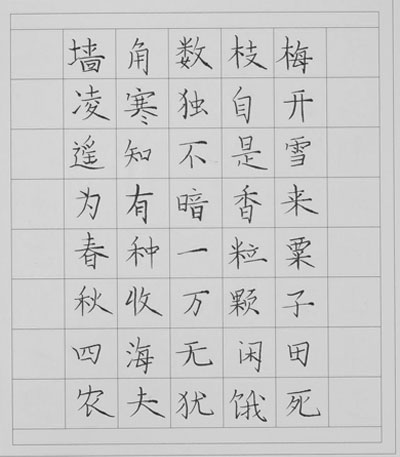 墙角数枝梅
凌寒独自开
遥知不是雪
为有暗香来
春种一粒粟
秋收万颗子
四海无闲田
农夫犹饿死